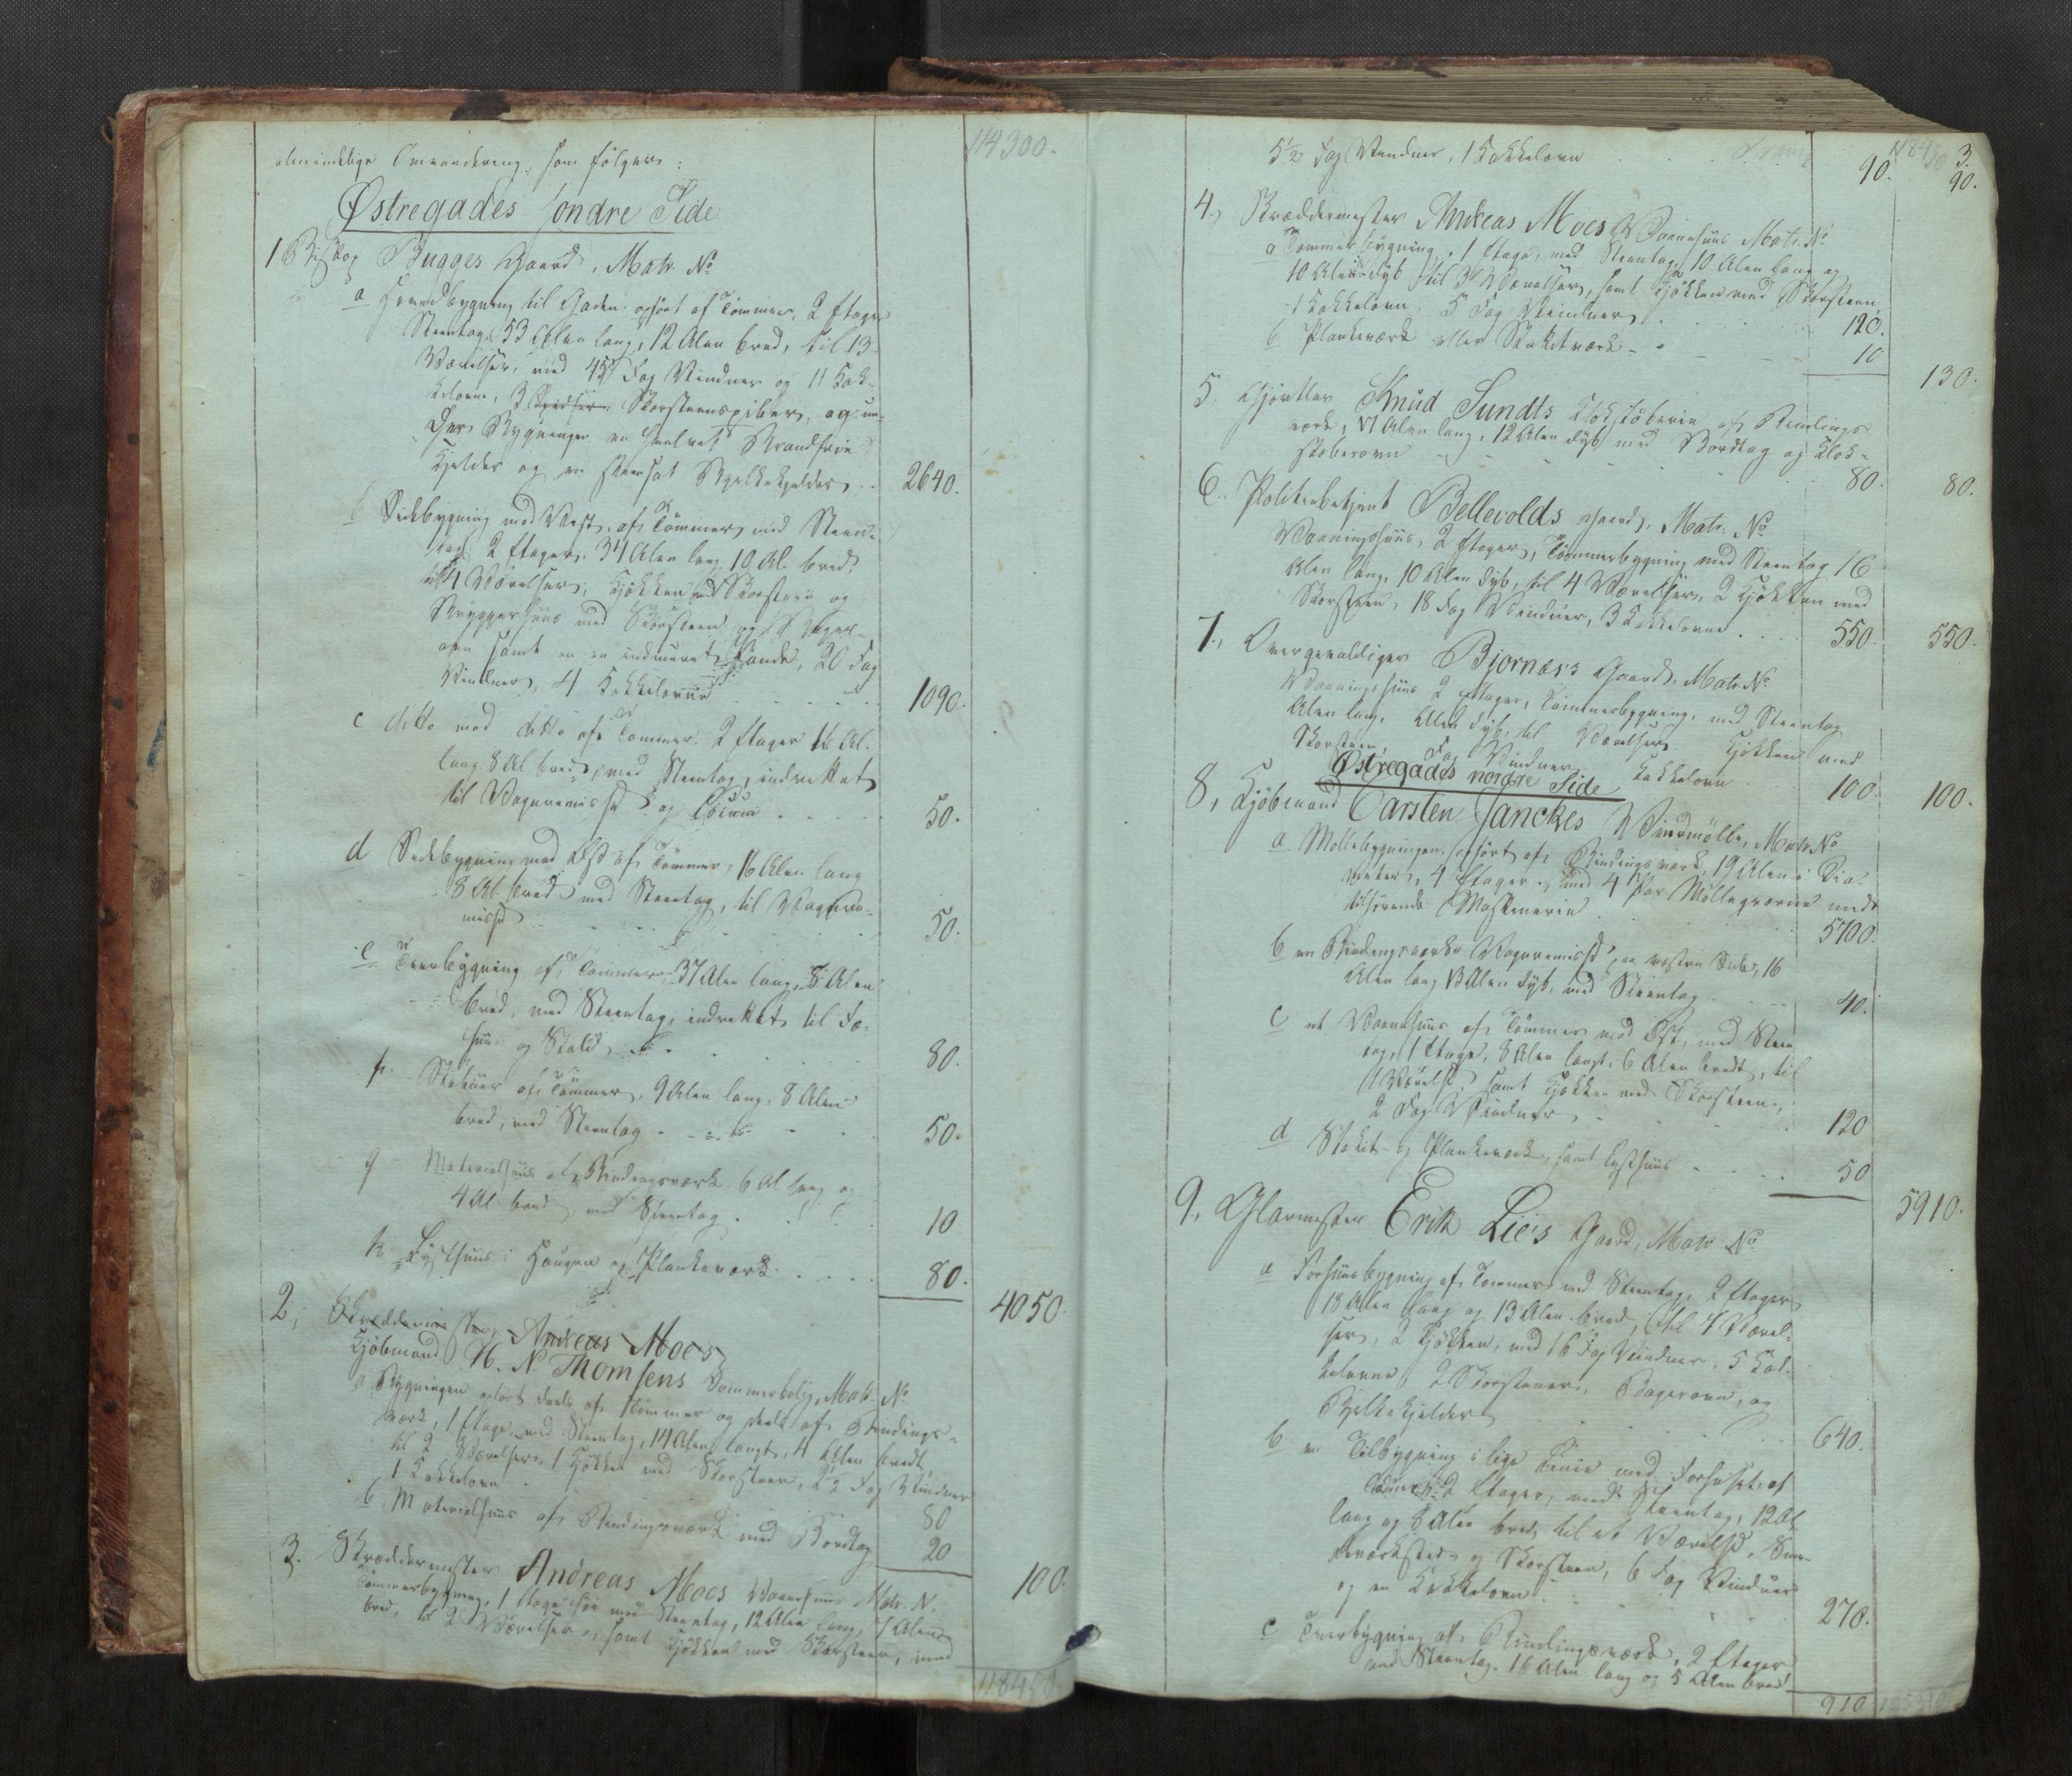 almindelige Omvurdering, som følger:
114300.
Østregades søndre Side
1 Biskop Bugges Gaard, Matr. No
a Hovedbygning til Gaden opført af Tømmer, 2 Etager
Steentag, 53 Alen lang, 12 Alen bred, til 13
Værelser, med 45 Fag Vinduer og 11 Kak-
kelovne, 3 Skorsteenspiber, og un-
der Bygningen en hvelvet Brandfrie
Kjelder og en steensat Bjelkekjelder .. 2640.
b Sidebygning mod Vest, af Tømmer med Steen-
tag 2 Etager, 34 Alen lang 10 Al. bred,
til 4 Værelser, Kjøkken med Skorsteen og
Bryggerhuus med Skorsteen og Bager-
ovn samt en indmuret Pande, 20 Fag
Vinduer, 4 Kakkelovne . . . . . 1090.
c ditto mod ditto af Tømmer 2 Etager 16 Al.
lang 8 Al bred, med Steentag, indrettet
til Vognremisse og Locum . . . . 50.
d Sidebygning mod Øst af Tømmer, 16 Alen lang
8 Al. bred med Steentag, til Vognre-
misse . . . . . 50.
e Tverbygning af Tømmer, 37 Alen lang, 8 Alen
bred, med Steentag, indrettet til Fæ-
huus og Stald . . . . 80.
f. Stabuur af Tømmer, 9 Alen lang, 8 Alen
bred, med Steentag . . . . 50.
g Materialhuus af Bindingsværk 6 Al lang og
4 Al. bred med Steentag . . . . 10
h. Lysthuus i Haugen og Plankeværk . . . . 80.
4050.
2, Skræddermester Andreas Moes
Kjøbmand H. N. Thomsens Sommerbolig, Matr. No
a Bygningen opført deels af Tømmer og deels af Bindings-
værk, 1 Etage, med Steentag, 14 Alen langt, 4 Alen bredt
til 2 Værelser, 1 Kjøkken med Skorsteen, 2½ Fag Vinduer
1 Kakkelovn . 80
b Materialhuus af Bindingsværk med Bordtag 20
100.
3. Skræddermester Andreas Moes Vaanehuus Matr. N.
Tømmerbygning, 1 Etage med Steentag, 12 Alen lang, Alen
bred, til 2 Værelser, samt Kjøkken med Skorsteen, med
3.
5½ Fag Vinduer, 1 Kakkelovn 90. 90.
4., Skræddermester Andreas Moes Vaanehuus Matr. No
a Tømmerbygning, 1 Etage, med Steentag, 10 Alen lang og
10 Alen dyb til 3 Værelser, samt Kjøkken med Skorsteen,
1 Kakkelovn, 5 Fag Vinduer . . 120.
b Plankeværk eller Staketværk - - 10
130.
5. Gjørtler Knud Sundts Klokstøberie af Bindings-
værk, Alen lang, 12 Alen dyb med Bordtag og Klok-
støberovn - - - 80. 80.
6. Politiebetjent Bellevolds Gaard, Matr. No
Vaaningshuus, 2 Etager, Tømmerbygning med Steentag 16
Alen lang, 10 Alen dyb, til 4 Værelser, 2 Kjøkken med
Skorsteen, 18 Fag Vinduer, 3 Kakkelovne . . . . 550. 550.
7., Overgevaldiger Bjornæs's Gaard, Matr. No.
Vaaningshuus 2 Etager, Tømmerbygning, med Steentag
Alen lang, Alen dyb, til Værelser Kjøkken med
Skorsteen, Fag Vinduer Kakkelovn 100 100.
Østregades nordre Side
8, Kjøbmand Carsten Janckes Vindmølle, Matr. No
a Møllebygningen, opført af Bindingsværk, 19 Alen i Dia-
meter, 4 Etager, med 4 Par Møllegværne med
tilhørende Maskinerie . . . 5700.
b en Bindingsværks Vognremisse, paa vestre Side, 16
Alen lang 13 Alen dyb, med Steentag . . . . 40.
c et Vaanehuus af Tømmer mod Øst, med Steen-
tag, 1 Etage, 8 Alen langt, 6 Alen bredt, til
1 Værelse, samt Kjøkken med Skorsteen,
2 Fag Vinduer . . . 120
d Stakit- og Plankeværk, samt Lysthuus . . . . 50
5910.
9. Glarmester Erik Lie's Gaard, Matr No
a Forhuusbygning af Tømmer med Steentag, 2 Etager
18 Alen lang og 13 Alen bred, til 7 Værel-
ser, 2 Kjøkken, med 16 Fag Vinduer, 5 Kak-
kelovne, 2 Skorstener, Bagerovn, og
Bjelkekjelder . . . 640.
b en Tilbygning i lige Linie med Forhuset af
Tømmer 2 Etager, med Steentag, 12 Al.
lang og 8 Alen bred til et Værelse,
værksted og Skorsteen, 6 Fag Vinduer
og en Kakkelovn . . . 270.
c Tverbygning af Bindingsværk, 2 Etager
med Steentag, 16 Alen lang og 5 Alen bred
910